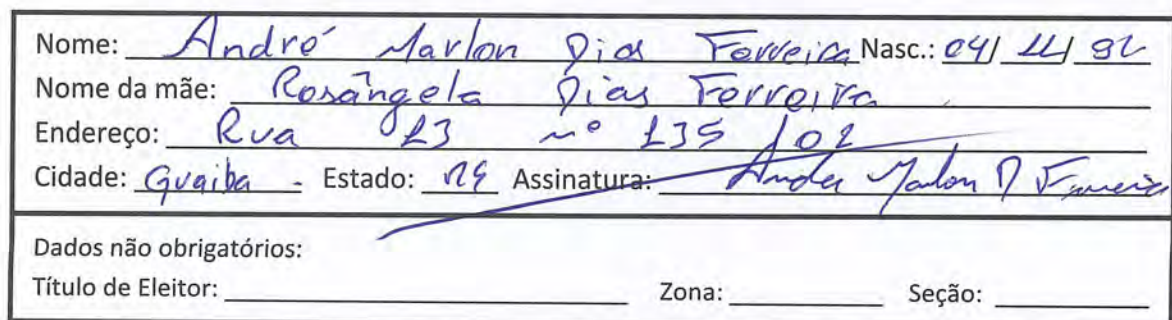 Nome: André Marlon Dias Ferreira Nasc.: 04/ 11/ 92
Nome da mãe: Rosângela Dias Ferreira
Endereço: Rua 23 nº 135 / 02
Cidade: Guaiba - Estado: RS Assinatura: Marlon D Ferreira
Dados não obrigatórios:
Título de Eleitor: Zona: Seção: